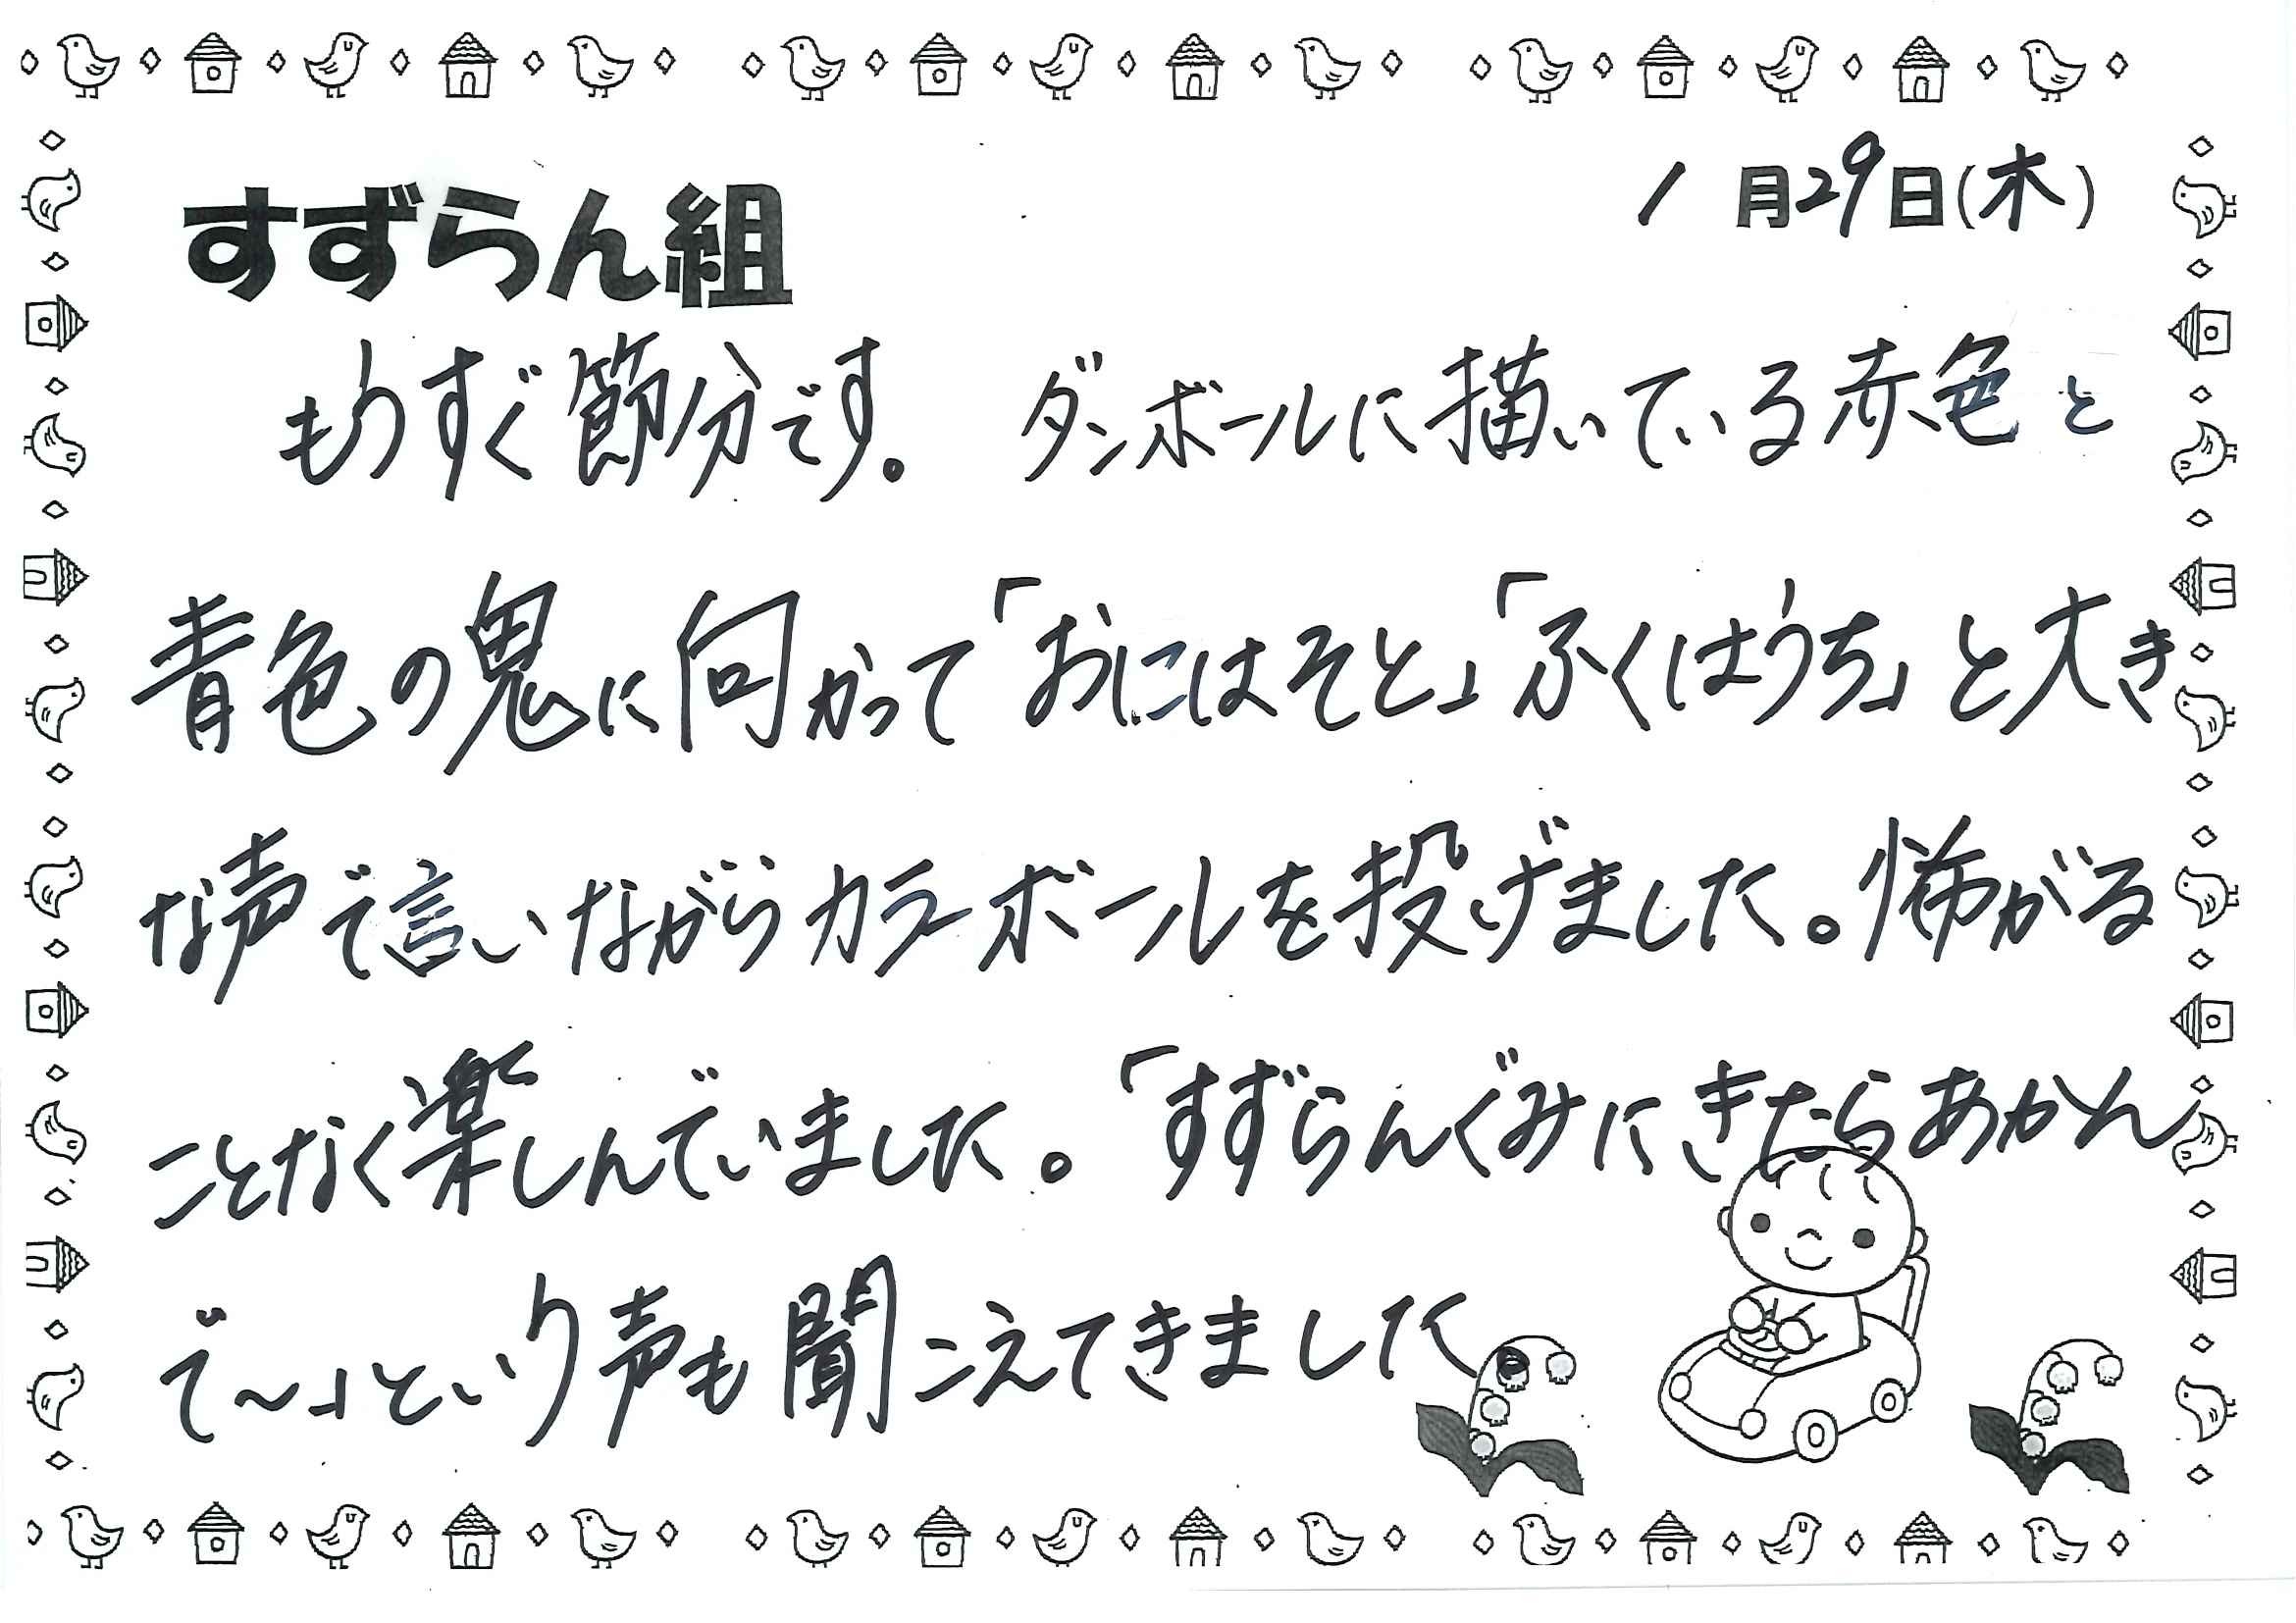 すずらん組
1月29日(木)
もうすぐ節分です。 ダンボールに描いている赤色と
青色の鬼に向かって「おにはそと」「ふくはうち」と大き
な声で言いながらカラーボールを投げました。怖がる
ことなく楽しんでいました。「すずらんぐみにきたらあかん
で〜」という声も聞こえてきました。